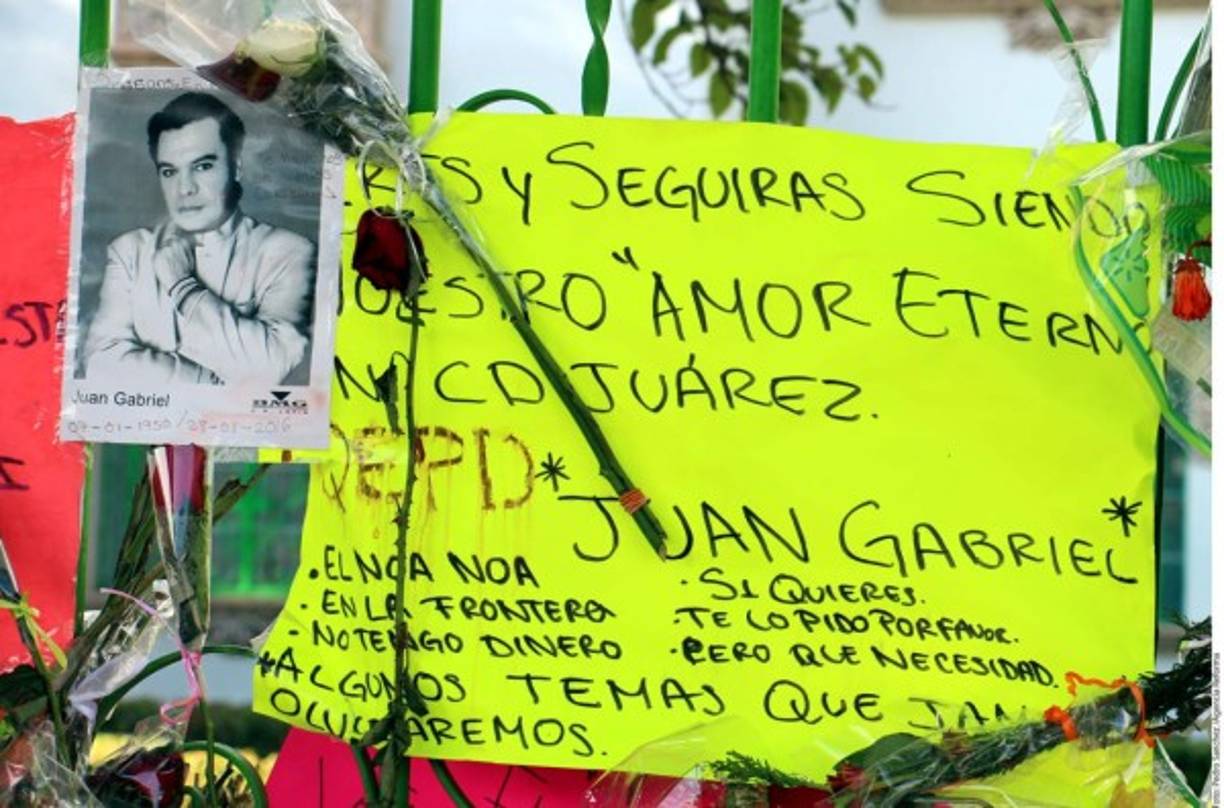 Juan Gabriel
BMG
07-01-1950 / 28-08-2016
ERES Y SEGUIRAS SIENDO
NUESTRO "AMOR ETERN
EN CD JUÁREZ.
QEPD *JUAN GABRIEL*
• EL NOA NOA
- EN LA FRONTERA
- NO TENGO DINERO
· SI QUIERES.
· TE LO PIDO POR FAVOR.
· PERO QUE NECESIDAD.
*ALGUNOS TEMAS QUE JAM
OLVIDAREMOS.